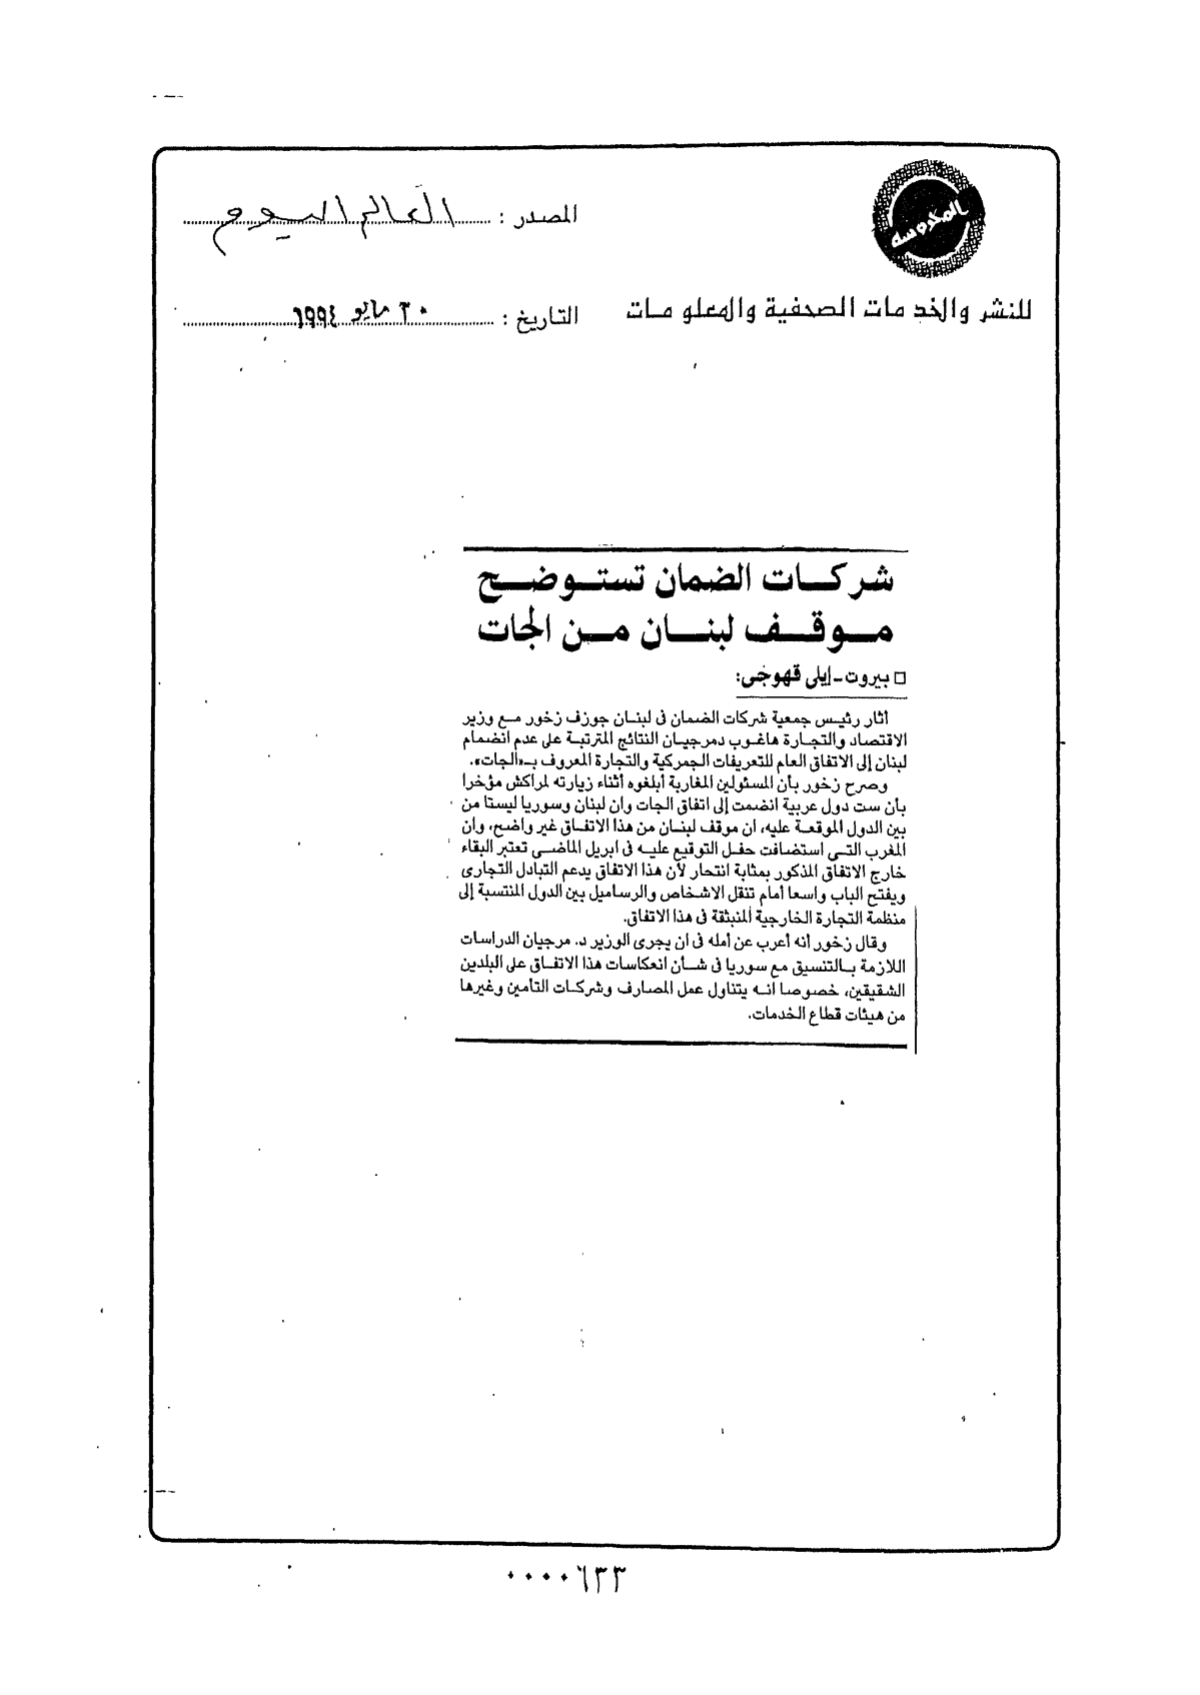 المحروسة
المصدر : العالم اليوم
للنشر والخدمات الصحفية والمعلومات
التاريخ : ٣٠ مايو ١٩٩٤
شركات الضمان تستوضح
موقف لبنان من الجات
□ بيروت - إيلى قهوجى:
أثار رئيس جمعية شركات الضمان فى لبنان جوزف زخور مع وزير
الاقتصاد والتجارة هاغوب دمرجيان النتائج المترتبة على عدم انضمام
لبنان إلى الاتفاق العام للتعريفات الجمركية والتجارة المعروف بـ«الجات».
وصرح زخور بأن المسئولين المغاربة أبلغوه أثناء زيارته لمراكش مؤخرا
بأن ست دول عربية انضمت إلى اتفاق الجات وان لبنان وسوريا ليستا من
بين الدول الموقعة عليه، ان موقف لبنان من هذا الاتفاق غير واضح، وان
المغرب التى استضافت حفل التوقيع عليه فى ابريل الماضى تعتبر البقاء
خارج الاتفاق المذكور بمثابة انتحار لأن هذا الاتفاق يدعم التبادل التجارى
ويفتح الباب واسعا أمام تنقل الاشخاص والرساميل بين الدول المنتسبة إلى
منظمة التجارة الخارجية المنبثقة فى هذا الاتفاق.
وقال زخور أنه أعرب عن أمله فى ان يجرى الوزير د. مرجيان الدراسات
اللازمة بالتنسيق مع سوريا فى شأن انعكاسات هذا الاتفاق على البلدين
الشقيقين، خصوصا انه يتناول عمل المصارف وشركات التأمين وغيرها
من هيئات قطاع الخدمات.
٠٠٠٠٦٣٣